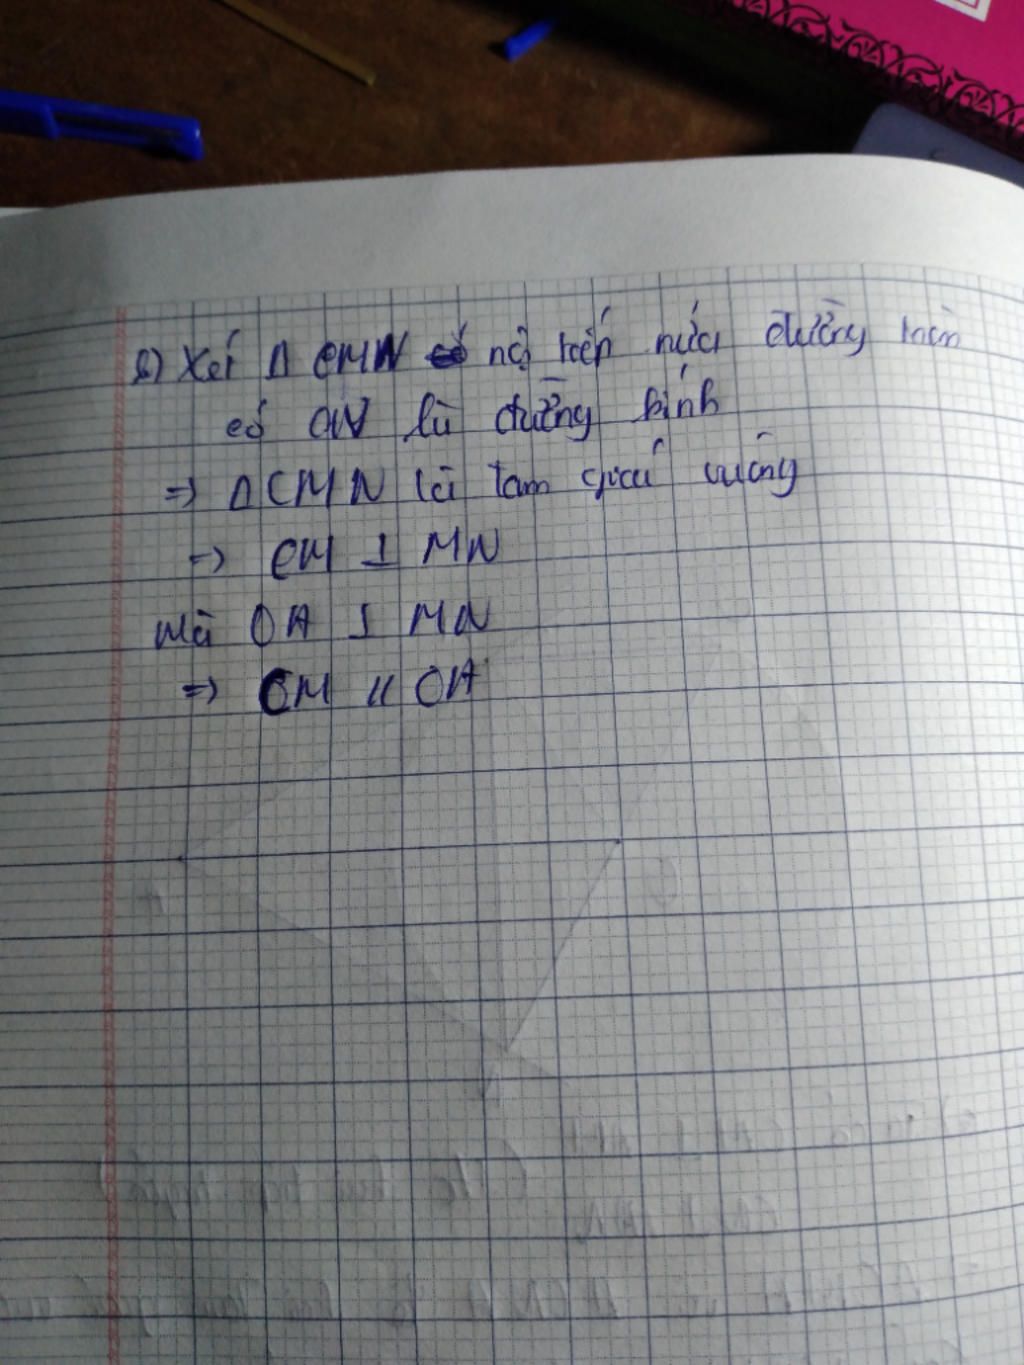 b) Xét Δ CMN nội tiếp nửa đường tròn
có CN là đường kính
=> Δ CMN là tam giác vuông
=> CM ⊥ MN
Mà OA ⊥ MN
=> CM // OA